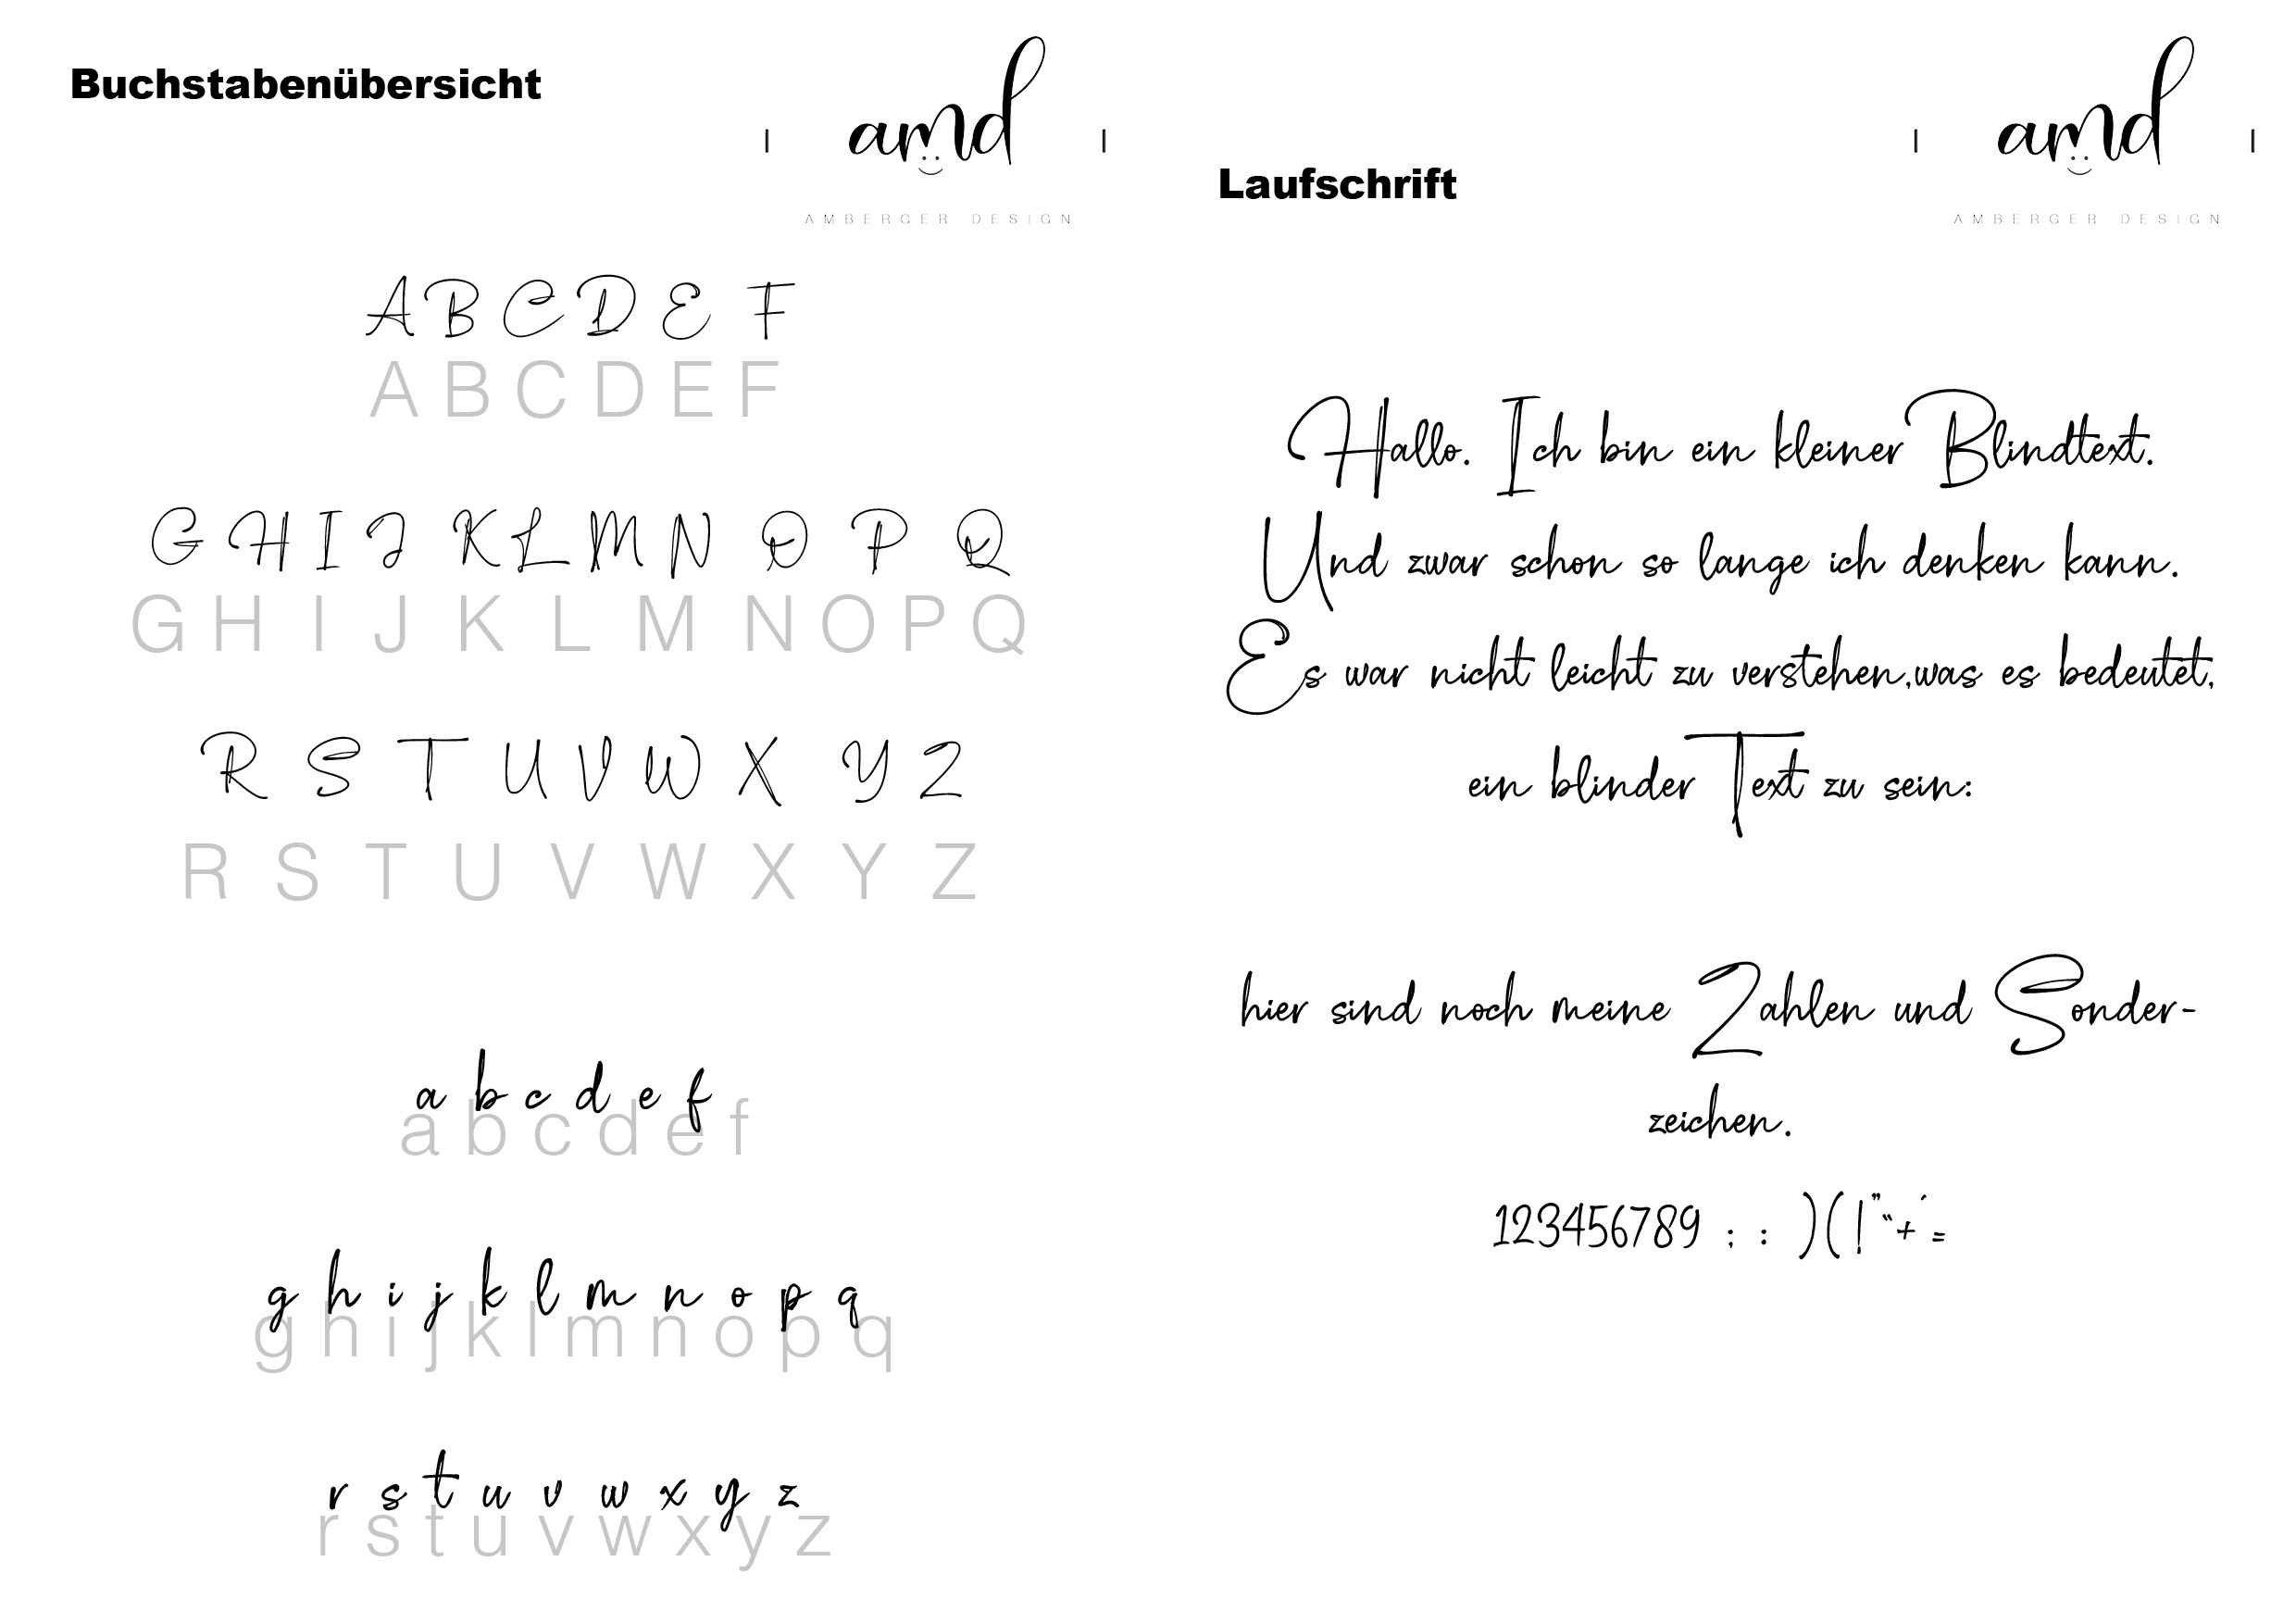 Buchstabenübersicht
amd
AMBERGER DESIGN
A B C D E F
A B C D E F
G H I J K L M N O P Q
G H I J K L M N O P Q
R S T U V W X Y Z
R S T U V W X Y Z
a b c d e f
a b c d e f
g h i j k l m n o p q
g h i j k l m n o p q
r s t u v w x y z
r s t u v w x y z
amd
Laufschrift
AMBERGER DESIGN
Hallo. Ich bin ein kleiner Blindtext.
Und zwar schon so lange ich denken kann.
Es war nicht leicht zu verstehen,was es bedeutet,
ein blinder Text zu sein:
hier sind noch meine Zahlen und Sonder-
zeichen.
123456789 ; : )(!"“+´=